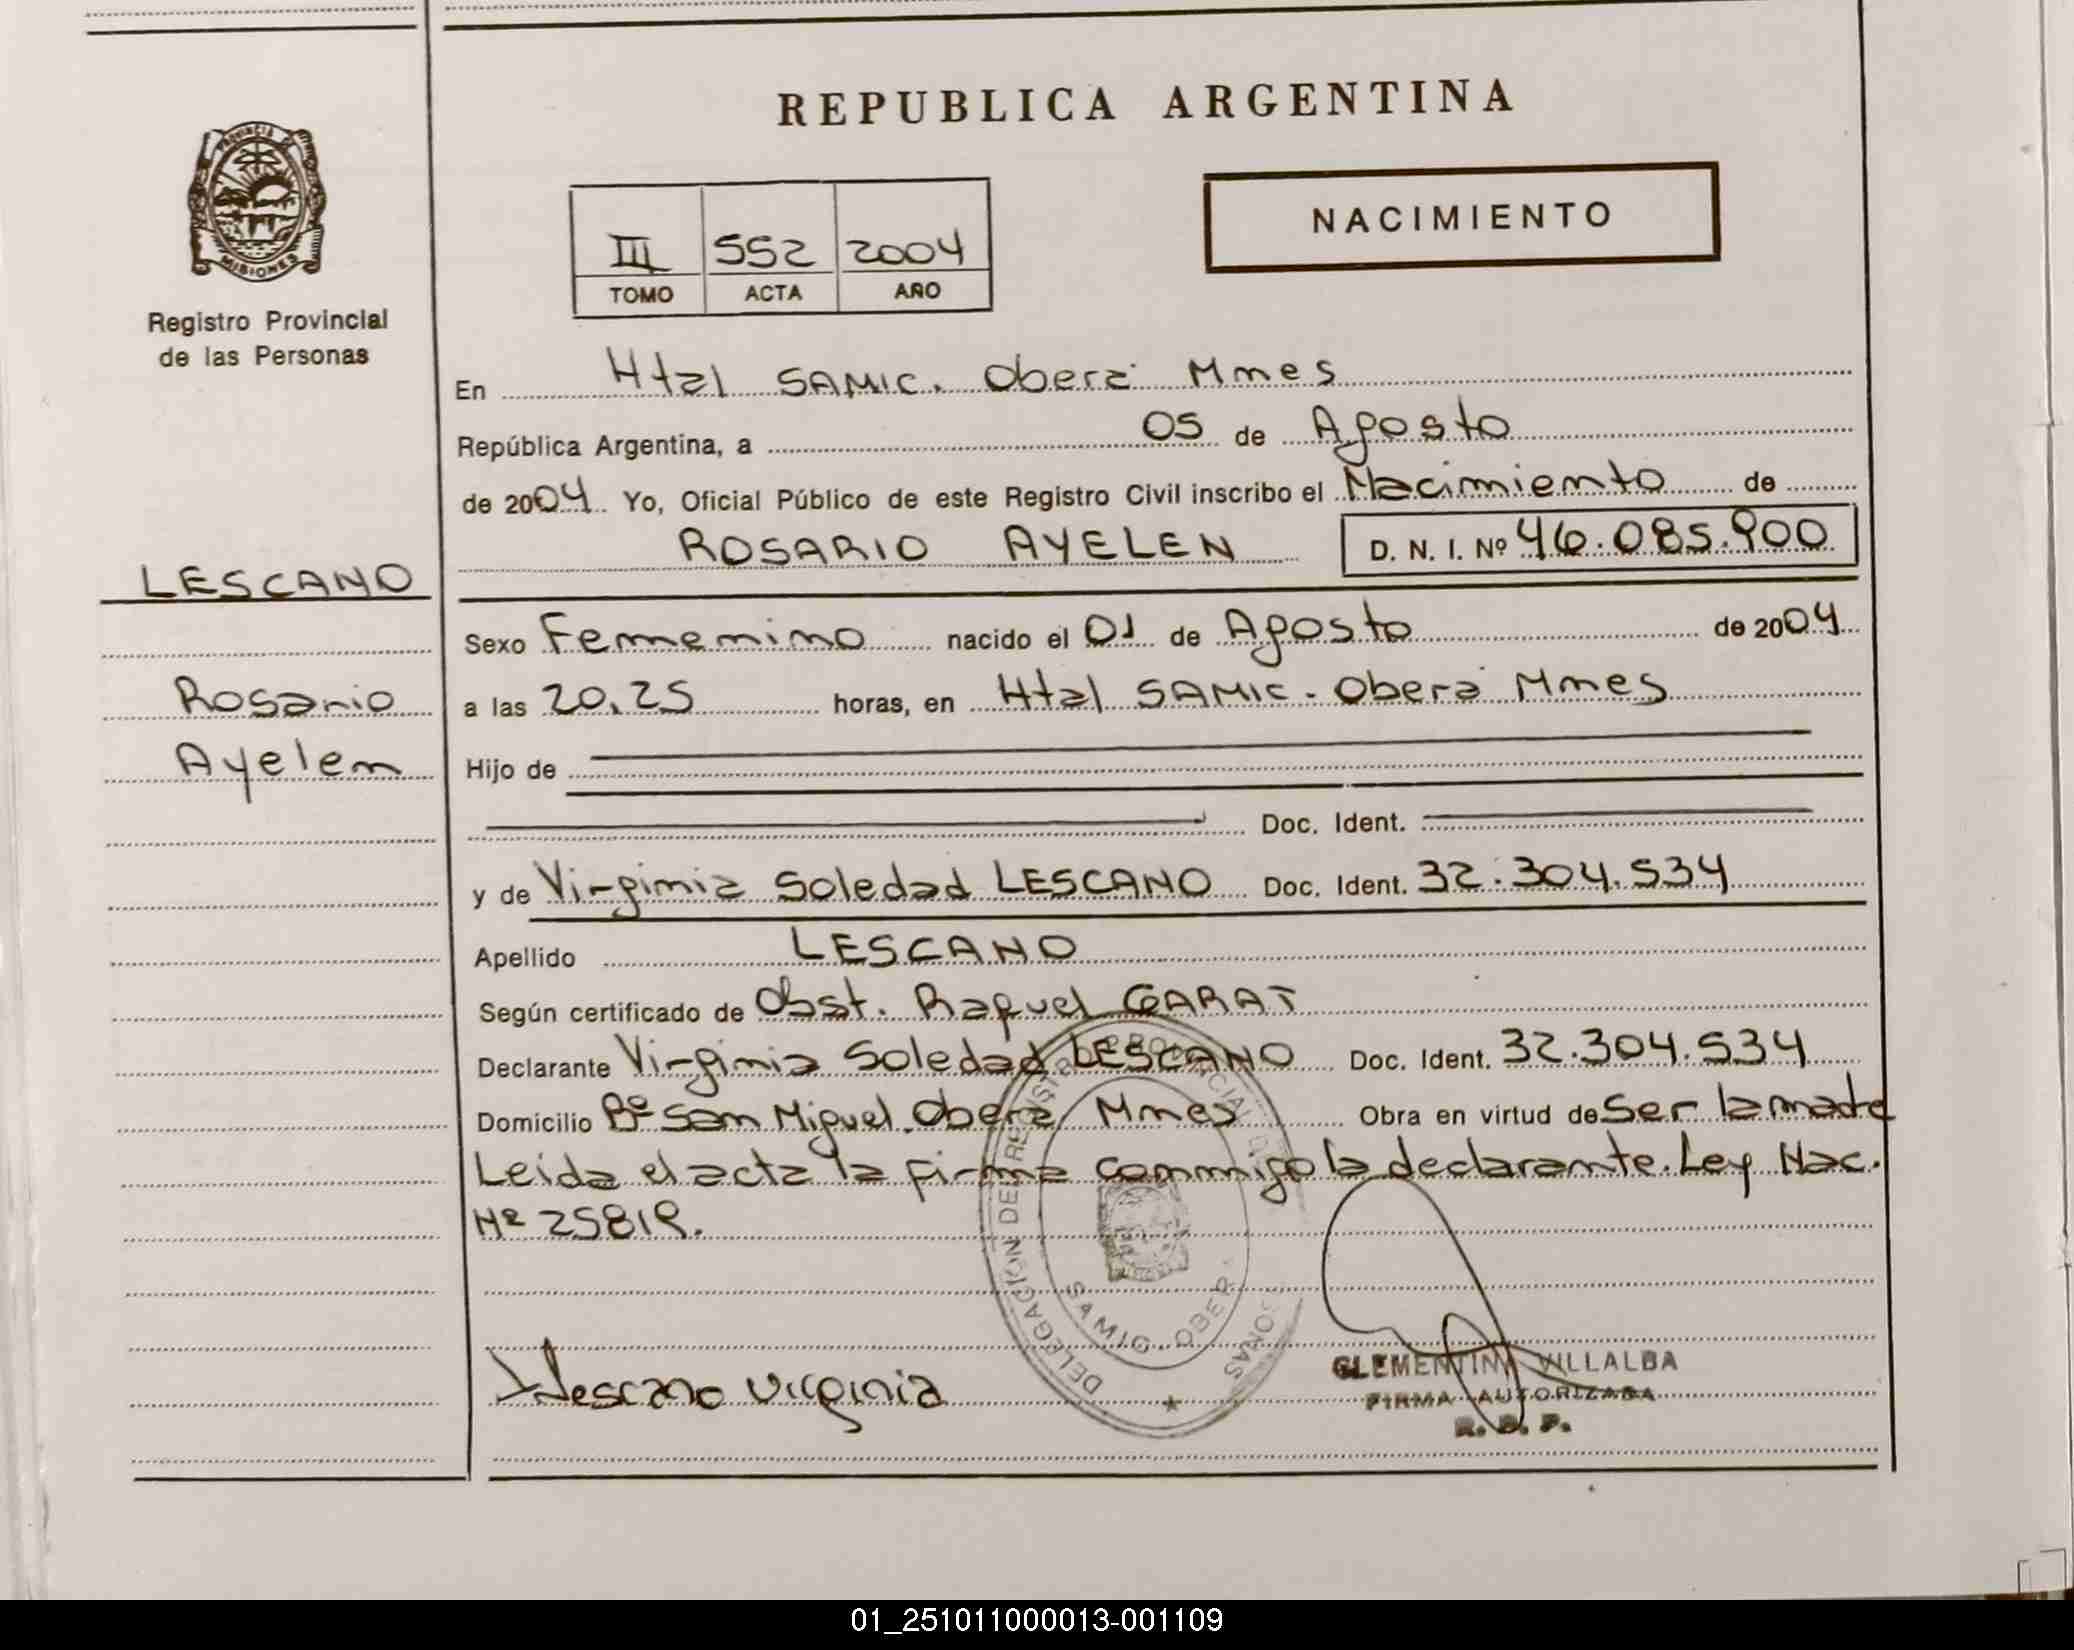 REPUBLICA ARGENTINA
PROVINCIA DE
MISIONES
Registro Provincial
de las Personas
III 552 2004
TOMO ACTA AÑO
NACIMIENTO
En Htal SAMIC. Oberá Mnes
República Argentina, a 05 de Agosto
de 2004. Yo, Oficial Público de este Registro Civil inscribo el Nacimiento de
ROSARIO AYELEN D. N. I. Nº 46.085.900
LESCANO
Sexo Femenino nacido el 01 de Agosto de 2004
Rosario
Ayelen
a las 20.25 horas, en Htal SAMIC. Oberá Mnes
Hijo de
Doc. Ident.
y de Virginia Soledad LESCANO Doc. Ident. 32.304.534
Apellido LESCANO
Según certificado de Obst. Raquel GARAT
Declarante Virginia Soledad LESCANO Doc. Ident. 32.304.534
Domicilio Bº San Miguel. Oberá Mnes Obra en virtud de Ser la madre
Leida el acta la firma conmigo la declarante. Ley Nac.
Nº 25819.
DELEGACION DEL REGISTRO PROVINCIAL DE
SAMIC - OBERA
Lescano Virginia
CLEMENTINA VILLALBA
FIRMA AUTORIZADA
R. D. P.
01_251011000013-001109